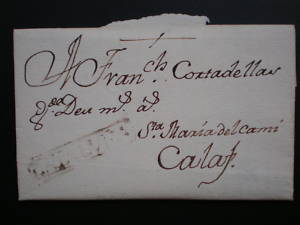 A Franch Cortadellas
qe Deu ms as
Sta Maria del Cami
Calaf.